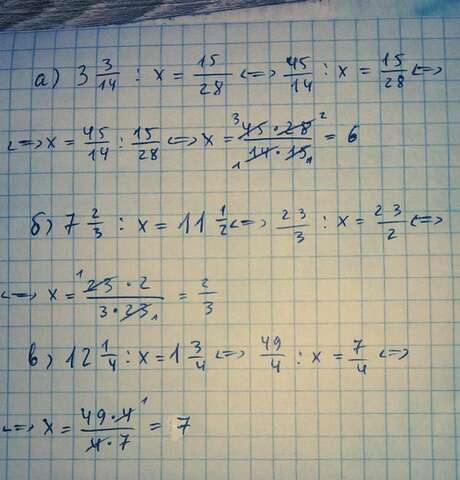 а) 3 3/14 : x = 15/28 <=> 45/14 : x = 15/28 <=>
<=> x = 45/14 : 15/28 <=> x = ³45·28²/₁14·15₁ = 6
б) 7 2/3 : x = 11 1/2 <=> 23/3 : x = 23/2 <=>
<=> x = ¹23·2/3·23₁ = 2/3
в) 12 1/4 : x = 1 3/4 <=> 49/4 : x = 7/4 <=>
<=> x = 49·4¹/4·7 = 7